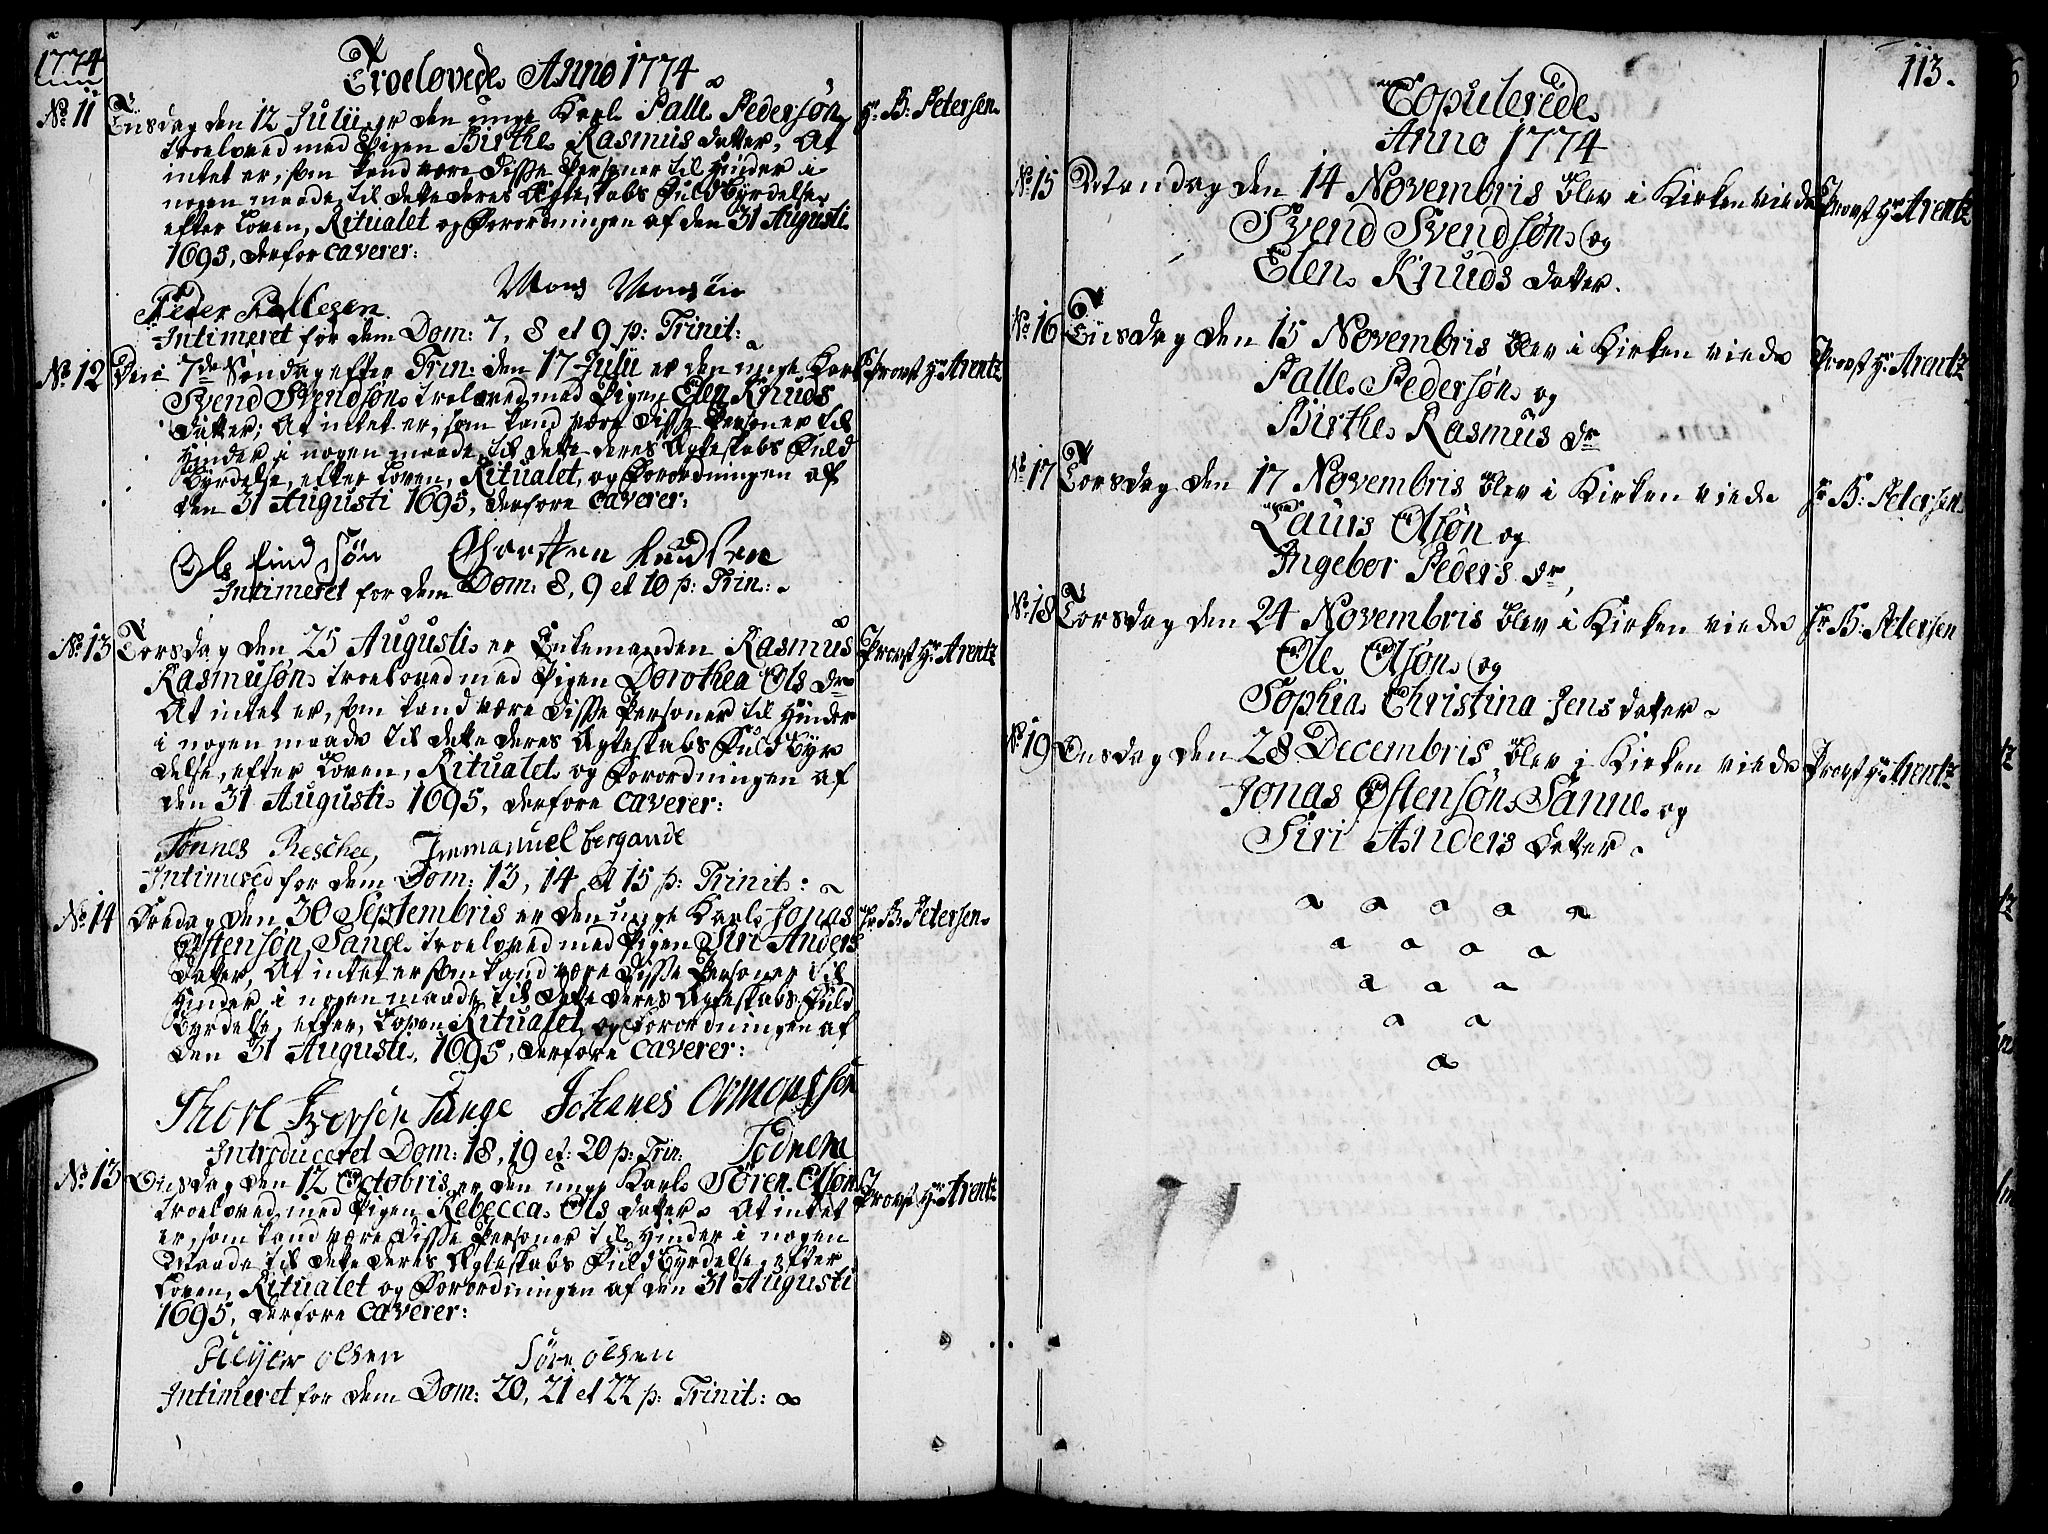 1774
Troelovede Anno 1774
No 11 Tiisdag den 12 Julii er den unge Karl Palle Pedersøn Hr B: Petersen
troeloved med Pigen Birthe Rasmus datter, At
intet er, som kand være disse Personer til Hinder i
nogen maade til dette deres Ægteskabs Fuldbyrdelse
efter Loven, Ritualet og Forordningen af den 31 Augusti
1695, derfor caverer:
Peder Pallesen Mons Monsøn
Intimeret for dem Dom: 7, 8 et 9 p: Trinit:
No 12 Den 7de Søndag efter Trin: den 17 Julii er den unge Karl Provst Hr Arentz
Svend Svendsøn troeloved med Pigen Elen Knuds
datter; At intet er, som kand være disse Personer til
Hinder i nogen maade til dette deres Ægteskabs Fuld
byrdelse, efter Loven, Ritualet, og Forordningen af
den 31 Augusti 1695, derfore caverer:
Ole find Søn Thorsten knudsen
Intimeret for dem Dom: 8, 9 et 10 p: Trin:
No 13 Torsdag den 25 Augusti er Enkemanden Rasmus Provst Hr Arentz
Rasmusøn troeloved med Pigen Dorothea Ols dr
At intet er, som kand være disse Personer til Hinder
i nogen maade til dette deres Ægteskabs Fuldbyr
delse, efter Loven, Ritualet og Forordningen af
den 31 Augusti 1695, derfore caverer:
Tønnes Immanuel bergande
Intimered for dem Dom: 13, 14 et 15 p: Trinit:
No 14 Fredag den 30 Septembris er den unge Karl Jonas Hr B: Petersen
Østensøn Sande troeloved med Pigen Siri Anders
datter, At intet er som kand være disse Personer til
Hinder i nogen maade til dette deres Ægteskabs Fuld
byrdelse, efter Loven Ritualet og Forordningen af
den 31 Augusti 1695, derfore caverer:
Thore Iversen Johanes Ormonssen
Introduceret Dom: 18, 19 et: 20 p: Trin: Todnem
No 13 Onsdag den 12 Octobris er den unge Karl Søren Olsøn Provst Hr Arentz
troeloved med Pigen Rebecca Ols datter At intet
er, som kand være disse Personer til Hinder i nogen
Maade til dette deres Ægteskabs Fuldbyrdelse, efter
Loven, Ritualet og Forordningen af den 31 Augusti
1695, derfore caverer:
olsen Søre olsen
Intimeret for dem Dom: 20, 21 et 22 p: Trinit:
113.
Copulerede
Anno 1774
No 15 Mandag den 14 Novembris blev i Kirken viede Provst Hr Arentz
Svend Svendsøn og
Elen Knuds datter.
No 16 Tiisdag den 15 Novembris blev i Kirken viede Provst Hr Arentz
Palle Pedersøn og
Birthe Rasmus dr
No 17 Torsdag den 17 Novembris blev i Kirken viede Hr B: Petersen
Laurs Olsøn og
Ingebor Peders dr,
No 18 Torsdag den 24 Novembris blev i Kirken viede Hr B: Petersen
Ole Olsøn og
Sophia Christina Jens datter
No 19 Onsdag den 28 Decembris blev i Kirken viede Provst Hr Arentz
Jonas Østensøn Sanne og
Siri Anders datter